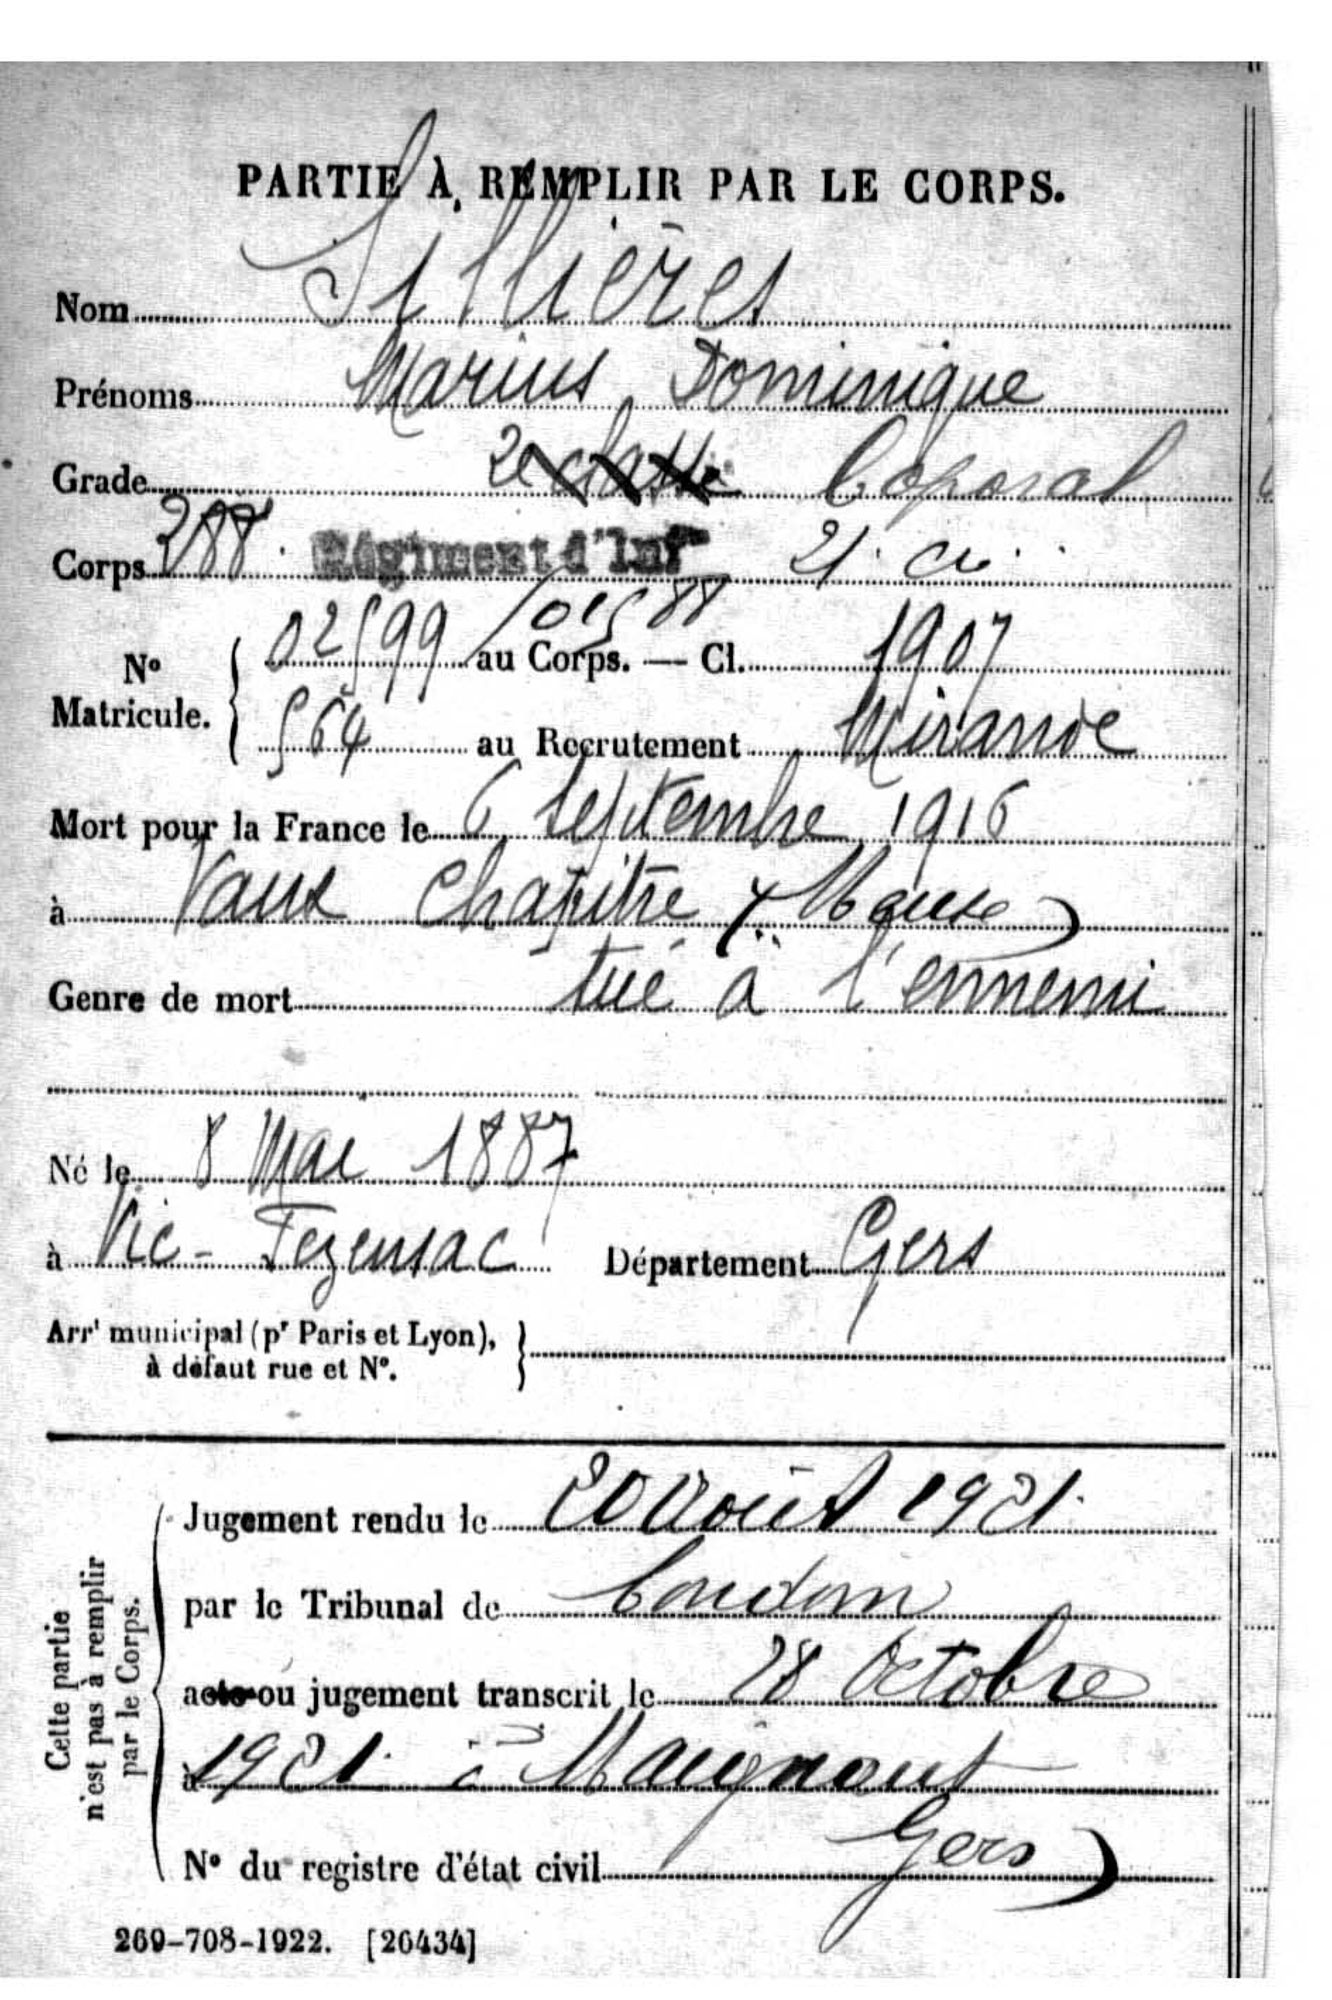 PARTIE À REMPLIR PAR LE CORPS.
Nom Sillières
Prénoms Marius Dominique
Grade 2e classe Caporal
Corps 288 Régiment d'Inf^ie 21 Cie
N° Matricule. { 02599 / 01588 au Corps. — Cl. 1907
564 au Recrutement Mirande
Mort pour la France le 6 Septembre 1916
à Vaux Chapitre (Meuse)
Genre de mort tué à l'ennemi
Né le 8 Mai 1887
à Vic-Fezensac Département Gers
Arr^t municipal (p^r Paris et Lyon), }
à défaut rue et N°.
Cette partie
n'est pas à remplir
par le Corps.
Jugement rendu le 20 Août 1921.
par le Tribunal de Condom
acte ou jugement transcrit le 28 Octobre
à 1921. à Maignaut
N° du registre d'état civil Gers)
269-708-1922. [26434]